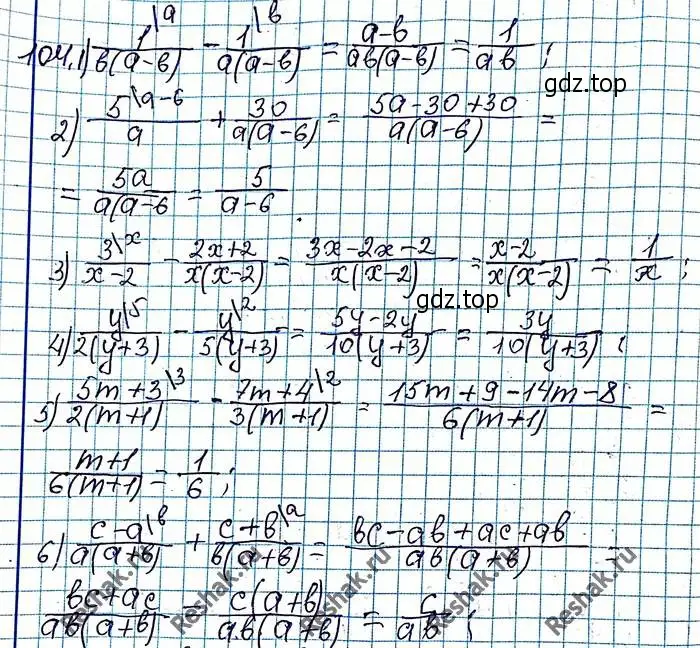 104.1) 1\a / b(a-b) - 1\b / a(a-b) = a-b / ab(a-b) = 1 / ab ;
gdz.top
2) 5\a-6 / a + 30 / a(a-6) = 5a-30+30 / a(a-6) =
= 5a / a(a-6 = 5 / a-6 .
3) 3\x / x-2 - 2x+2 / x(x-2) = 3x-2x-2 / x(x-2) = x-2 / x(x-2) = 1 / x ;
gdz.top
4) y\5 / 2(y+3) - y\2 / 5(y+3) = 5y-2y / 10(y+3) = 3y / 10(y+3) ;
5) 5m+3\3 / 2(m+1) - 7m+4\2 / 3(m+1) = 15m+9-14m-8 / 6(m+1) =
m+1 / 6(m+1) = 1 / 6 ;
6) c-a\b / a(a+b) + c+b\a / b(a+b) = bc-ab+ac+ab / ab(a+b) =
bc+ac / ab(a+b) - c(a+b) / ab(a+b) = c / ab ;
Reshak.ru Reshak.ru Reshak.ru Reshak.ru